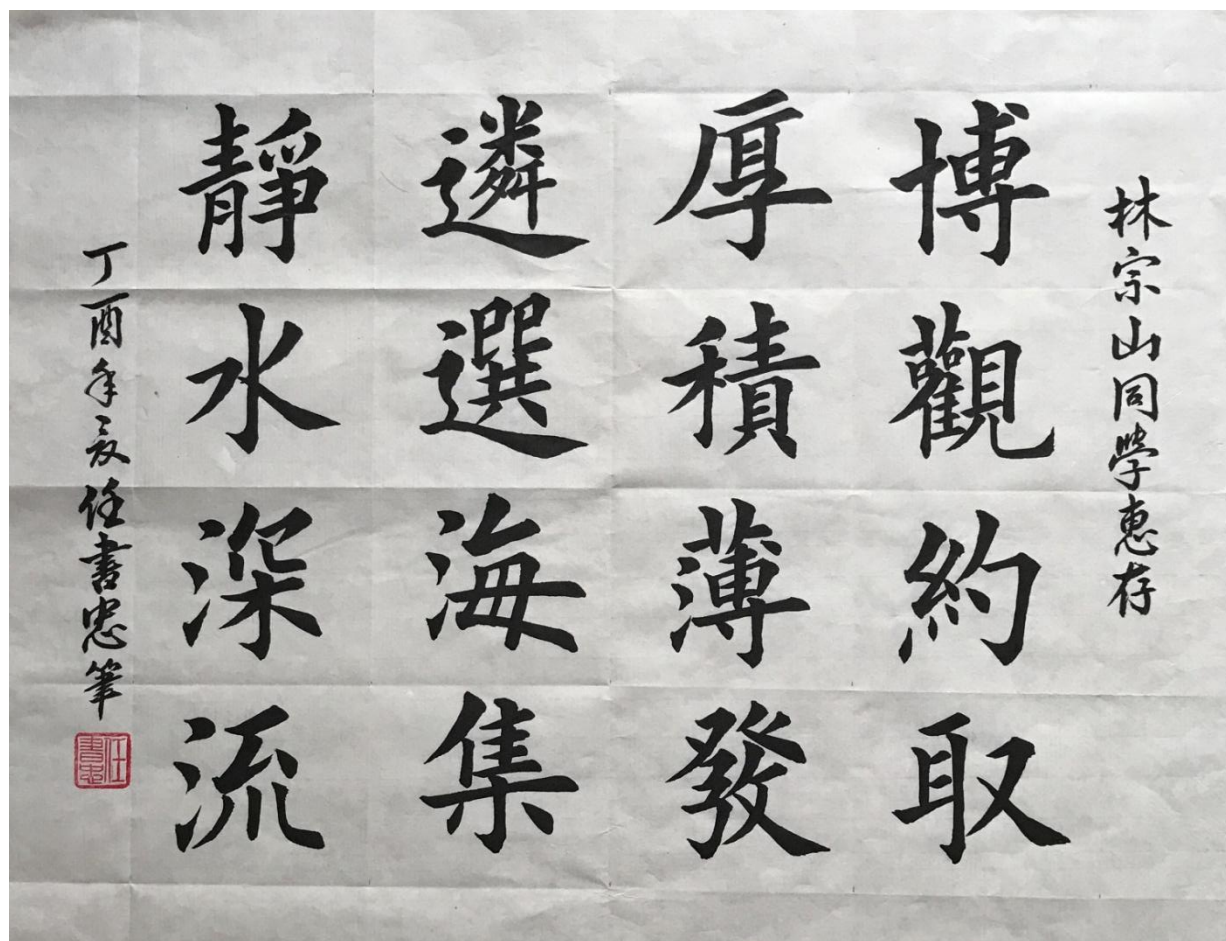 林宗山同學惠存
博觀約取
厚積薄發
遴選海集
靜水深流
丁酉年夏任書忠筆
任書忠